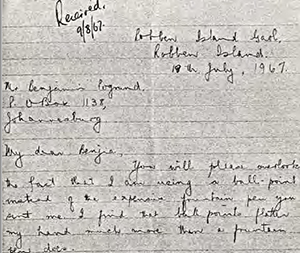 Received.
9/8/67.
Robben Island Gaol.
Robben Island.
18th July, 1967.
Mr Benjamin Pogrund.
P. O. Box 1138,
Johannesburg
My dear Benjie,
You will please overlook
the fact that I am using a ball-point
instead of the expensive fountain pen you
sent me. I find that ball points flatter
my hand much more than a fountain
pen does.